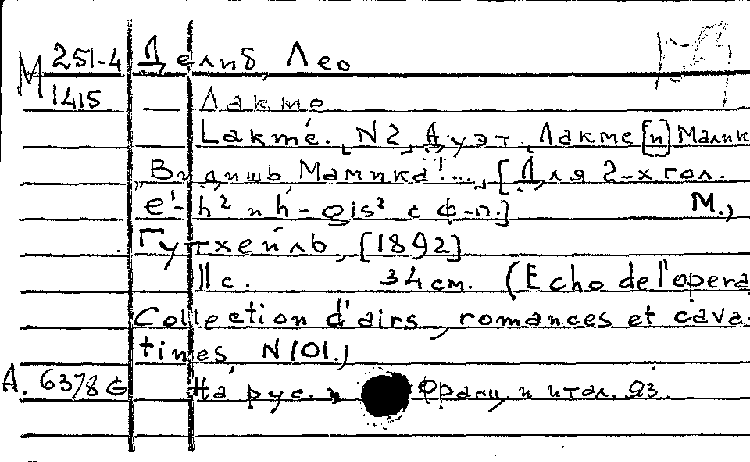 М 251-4 Делиб, Лео
1415 Лакме
Lakmé. N2, Дуэт Лакме [и] Малик
"Видишь, Мамика!..." [Для 2-х гол.
e¹-h² и h-gis² с ф-п.] М.,
Гутхейль, [1892]
11 с. 34 см. (Echo de l'opera
Collection d'airs, romances et cava-
tines, N101.)
А. 6378 На рус. и франц. и итал. яз.